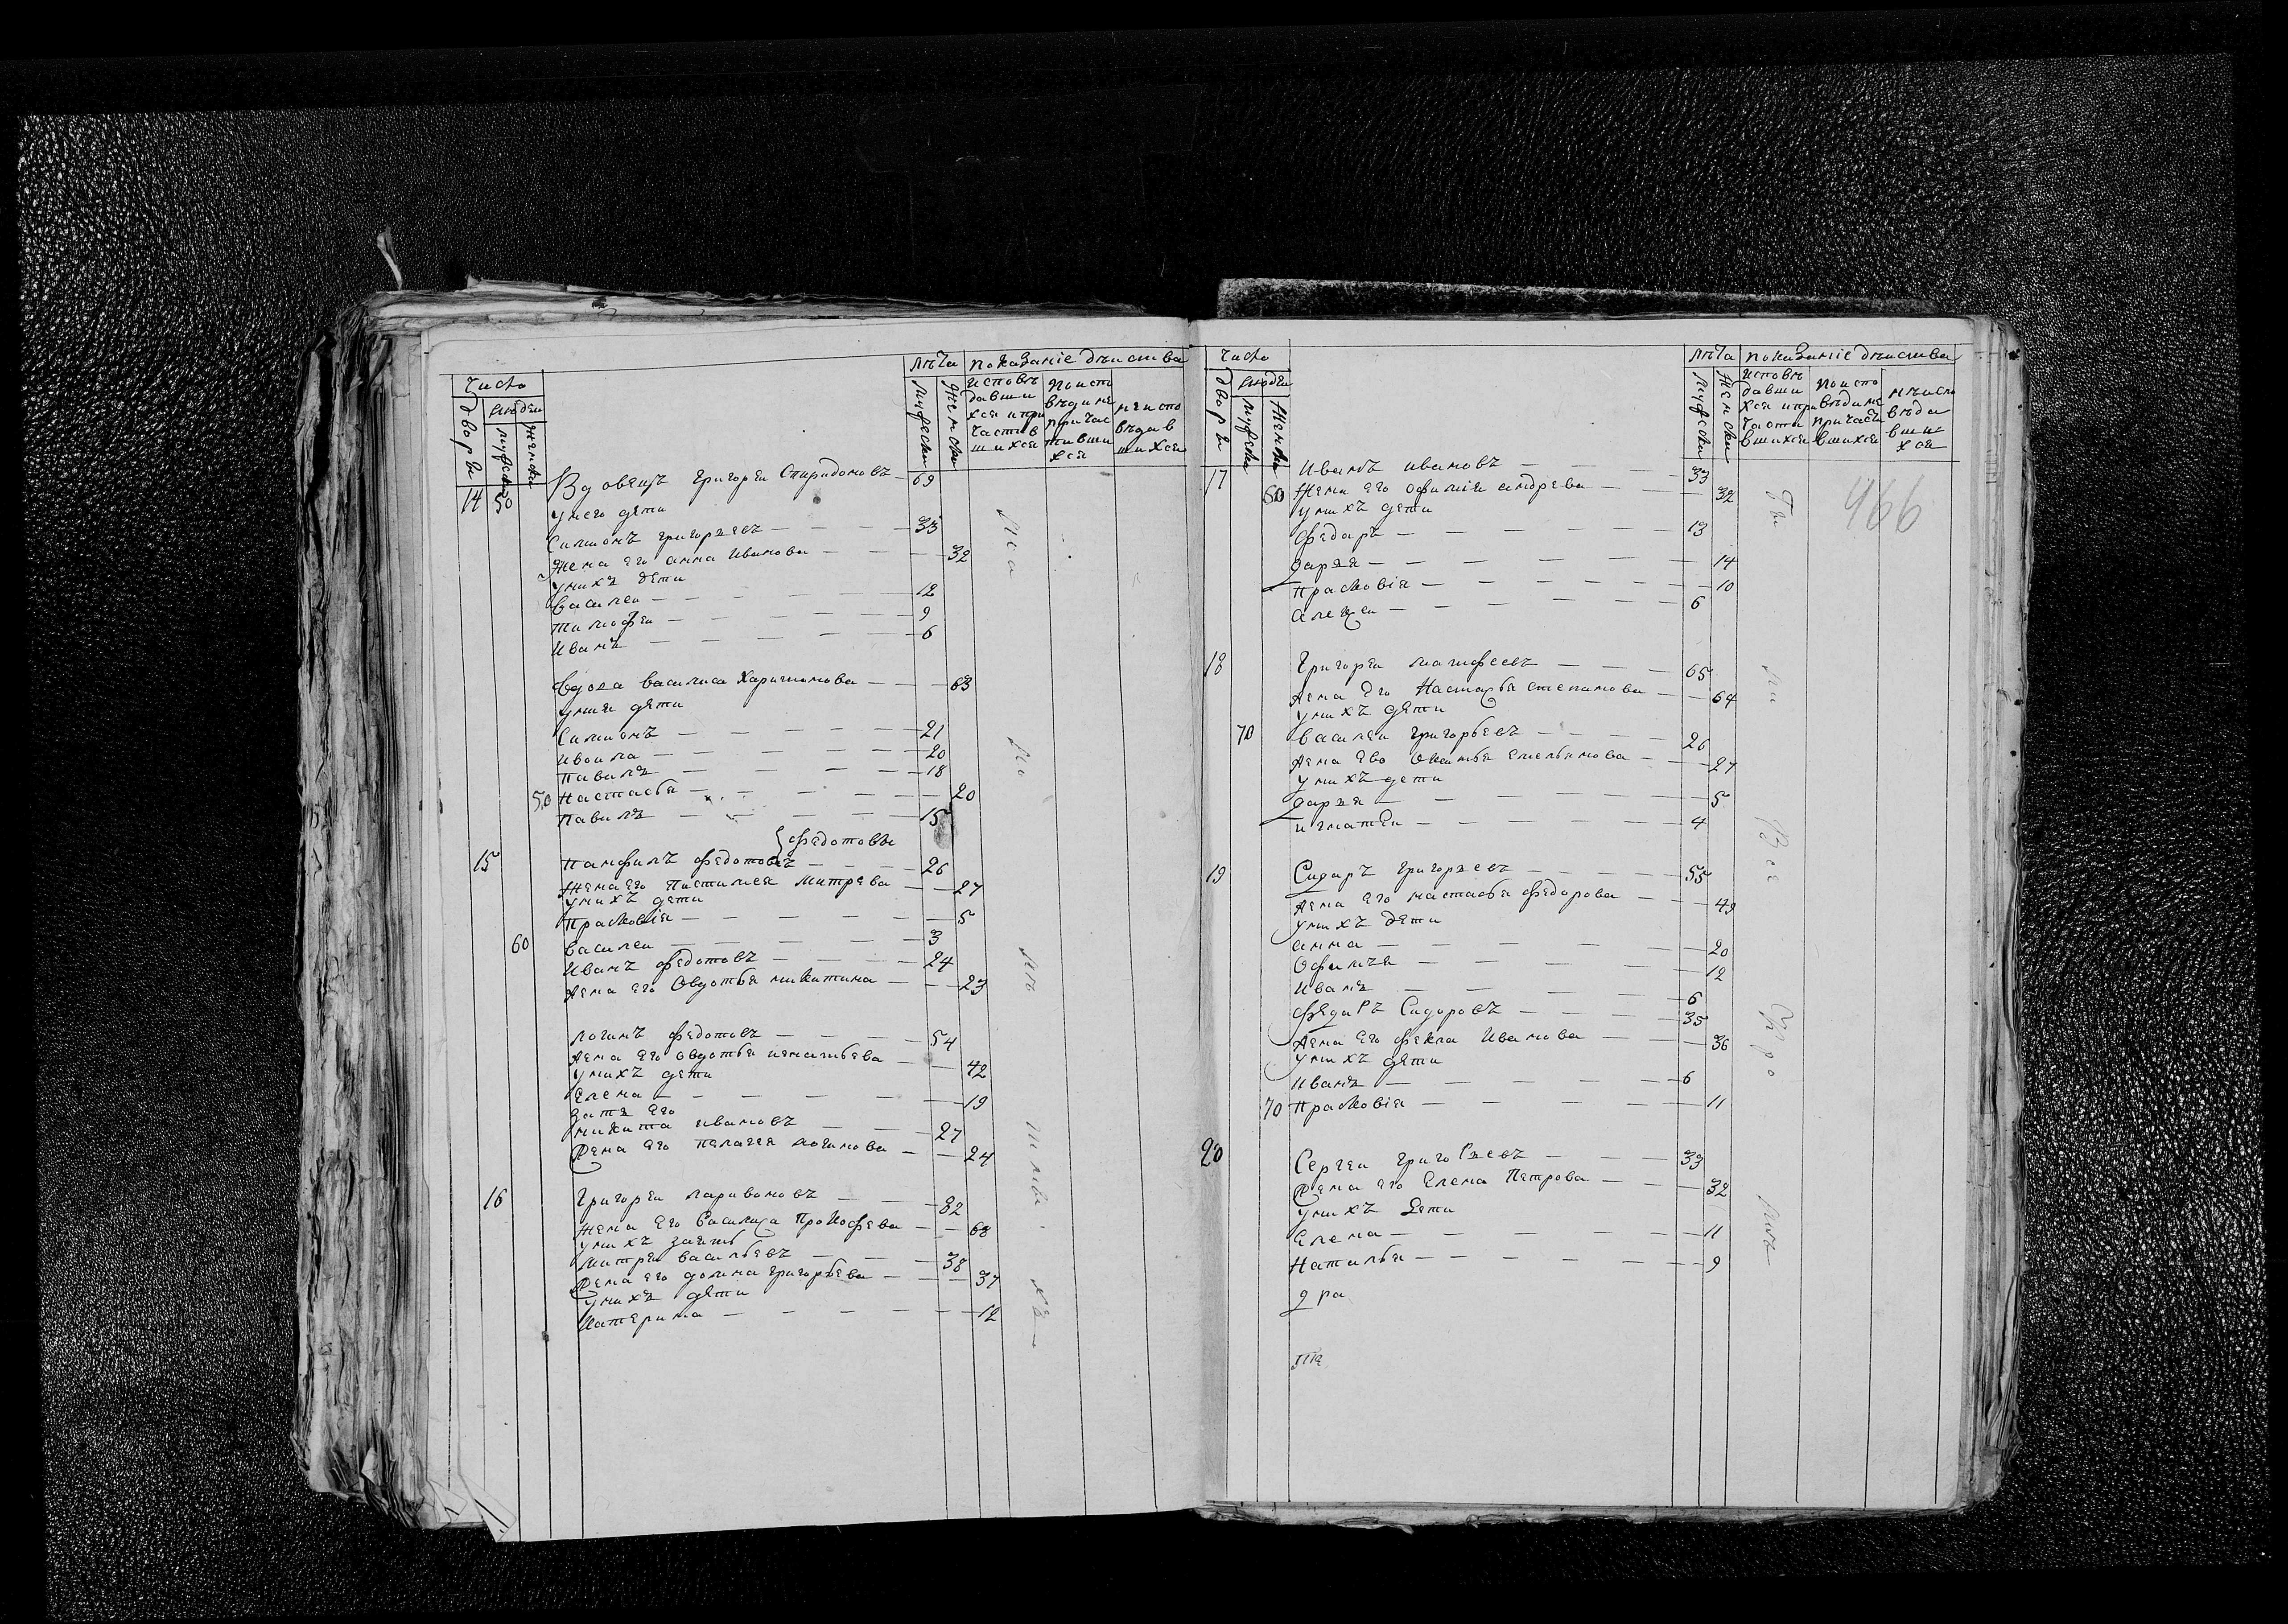 число
дворы
людеи
мужеска
женска
лѣта
мужески
женски
показаніе дѣиства
исповѣ
давши
хся и при
частив
шихся
по испо
вѣди не
причас
тивши
хся
не испо
вѣдав
шихся
14 50 Вдовецъ григореи Спиридоновъ — 69
у него дети
Симионъ григорьевъ — — — — 33
Жена его анна Иванова — — — 32
у нихъ дети
василеи — — — — — 12
тимофеи — — — — — 9
Иванъ — — — — — 6
вдова василиса Харитонова — — — 63
у нии дети
Симионъ — — — — — 21
— — — — — 20
павилъ — — — — 18
50 Настасья — — — — — 20
павилъ — — — — — 15
федотовы
15 Панфилъ федотовъ — — — 26
жена его Митрева — — 27
у нихъ дети
Прасковія — — — — — 5
60 василеи — — — — — 3
Иванъ федотовъ — — — — 24
жена его Овдотья никитина — — — 23
логинъ федотовъ — — — — 54
жена его овдотья игнатьева — — 42
у нихъ дети
Елена — — — — — — 19
зать его
никита ивановъ — — — 27
жена его пелагея логинова — — 24
16 Григореи ларивоновъ — — — 82
жена его Василиса Прокофева — — 68
у нихъ зать
митреи васильевъ — — — 38
жена его домна григорьева — — — 37
у нихъ дети
Катерина — — — — — — 12
число
дворы
людеи
мужеска
женска
лѣта
мужески
женски
показаніе дѣиства
исповѣ
давши
хся и при
части
вшихся
по испо
вѣди не
причасти
вшихся
не испо
вѣда
вши
хся
466
17 Иванъ ивановъ — — — — 33
60 Жена его офимия андрева — — — 32
у нихъ дети
федаръ — — — — — 13
дарья — — — — — — 14
Прасковія — — — — — — 10
алексеи — — — — — 6
18 Григореи матфеевъ — — — 65
жена Его Настасья степанова — — 64
у нихъ дети
70 василеи григорьевъ — — — — 26
жена Ево емельянова — — — 27
у нихъ дети
дарья — — — — — — 5
игнатеи — — — — — 4
19 Сидаръ григорьевъ — — — — 55
жена его настасья федорова — — — 49
у нихъ дети
анна — — — — — — 20
Офимья — — — — — — 12
Иванъ — — — — — 6
федаръ Сидоровъ — — — — 35
жена его фекла Иванова — — — 36
у нихъ дети
Иванъ — — — — — 6
70 Прасковія — — — — — 11
20 Сергеи григорьевъ — — — 33
жена его Елена Петрова — — — 32
у нихъ дети
Елена — — — — — — 11
Наталья — — — — — — 9